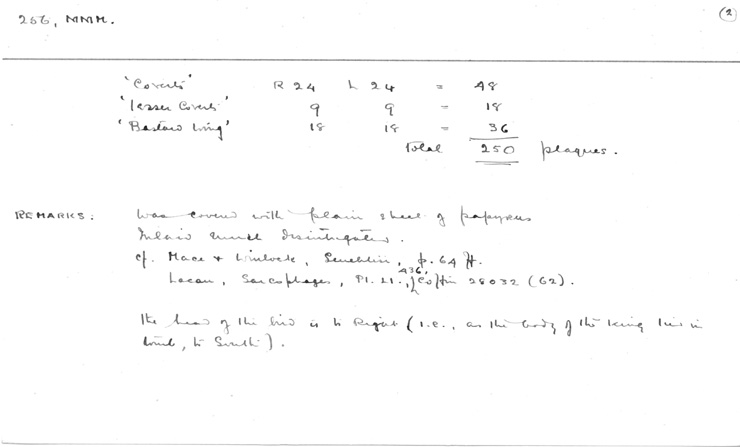 256, MMM. (2)
'Coverts' R 24 L 24 = 48
'Lesser Coverts' 9 9 = 18
'Bastard Wing' 18 18 = 36
Total 250 plaques.
REMARKS: Was covered with plain sheet of papyrus
Inlaid much disintegrated.
cf. Mace & Winlock, Senebtisi, p. 64 ff.
Lacau, Sarcophages, Pl. 21, 436, Coffin 28032 (62).
The head of the bird is to Right (i.e., as the body of the king lies in
tomb, to South).